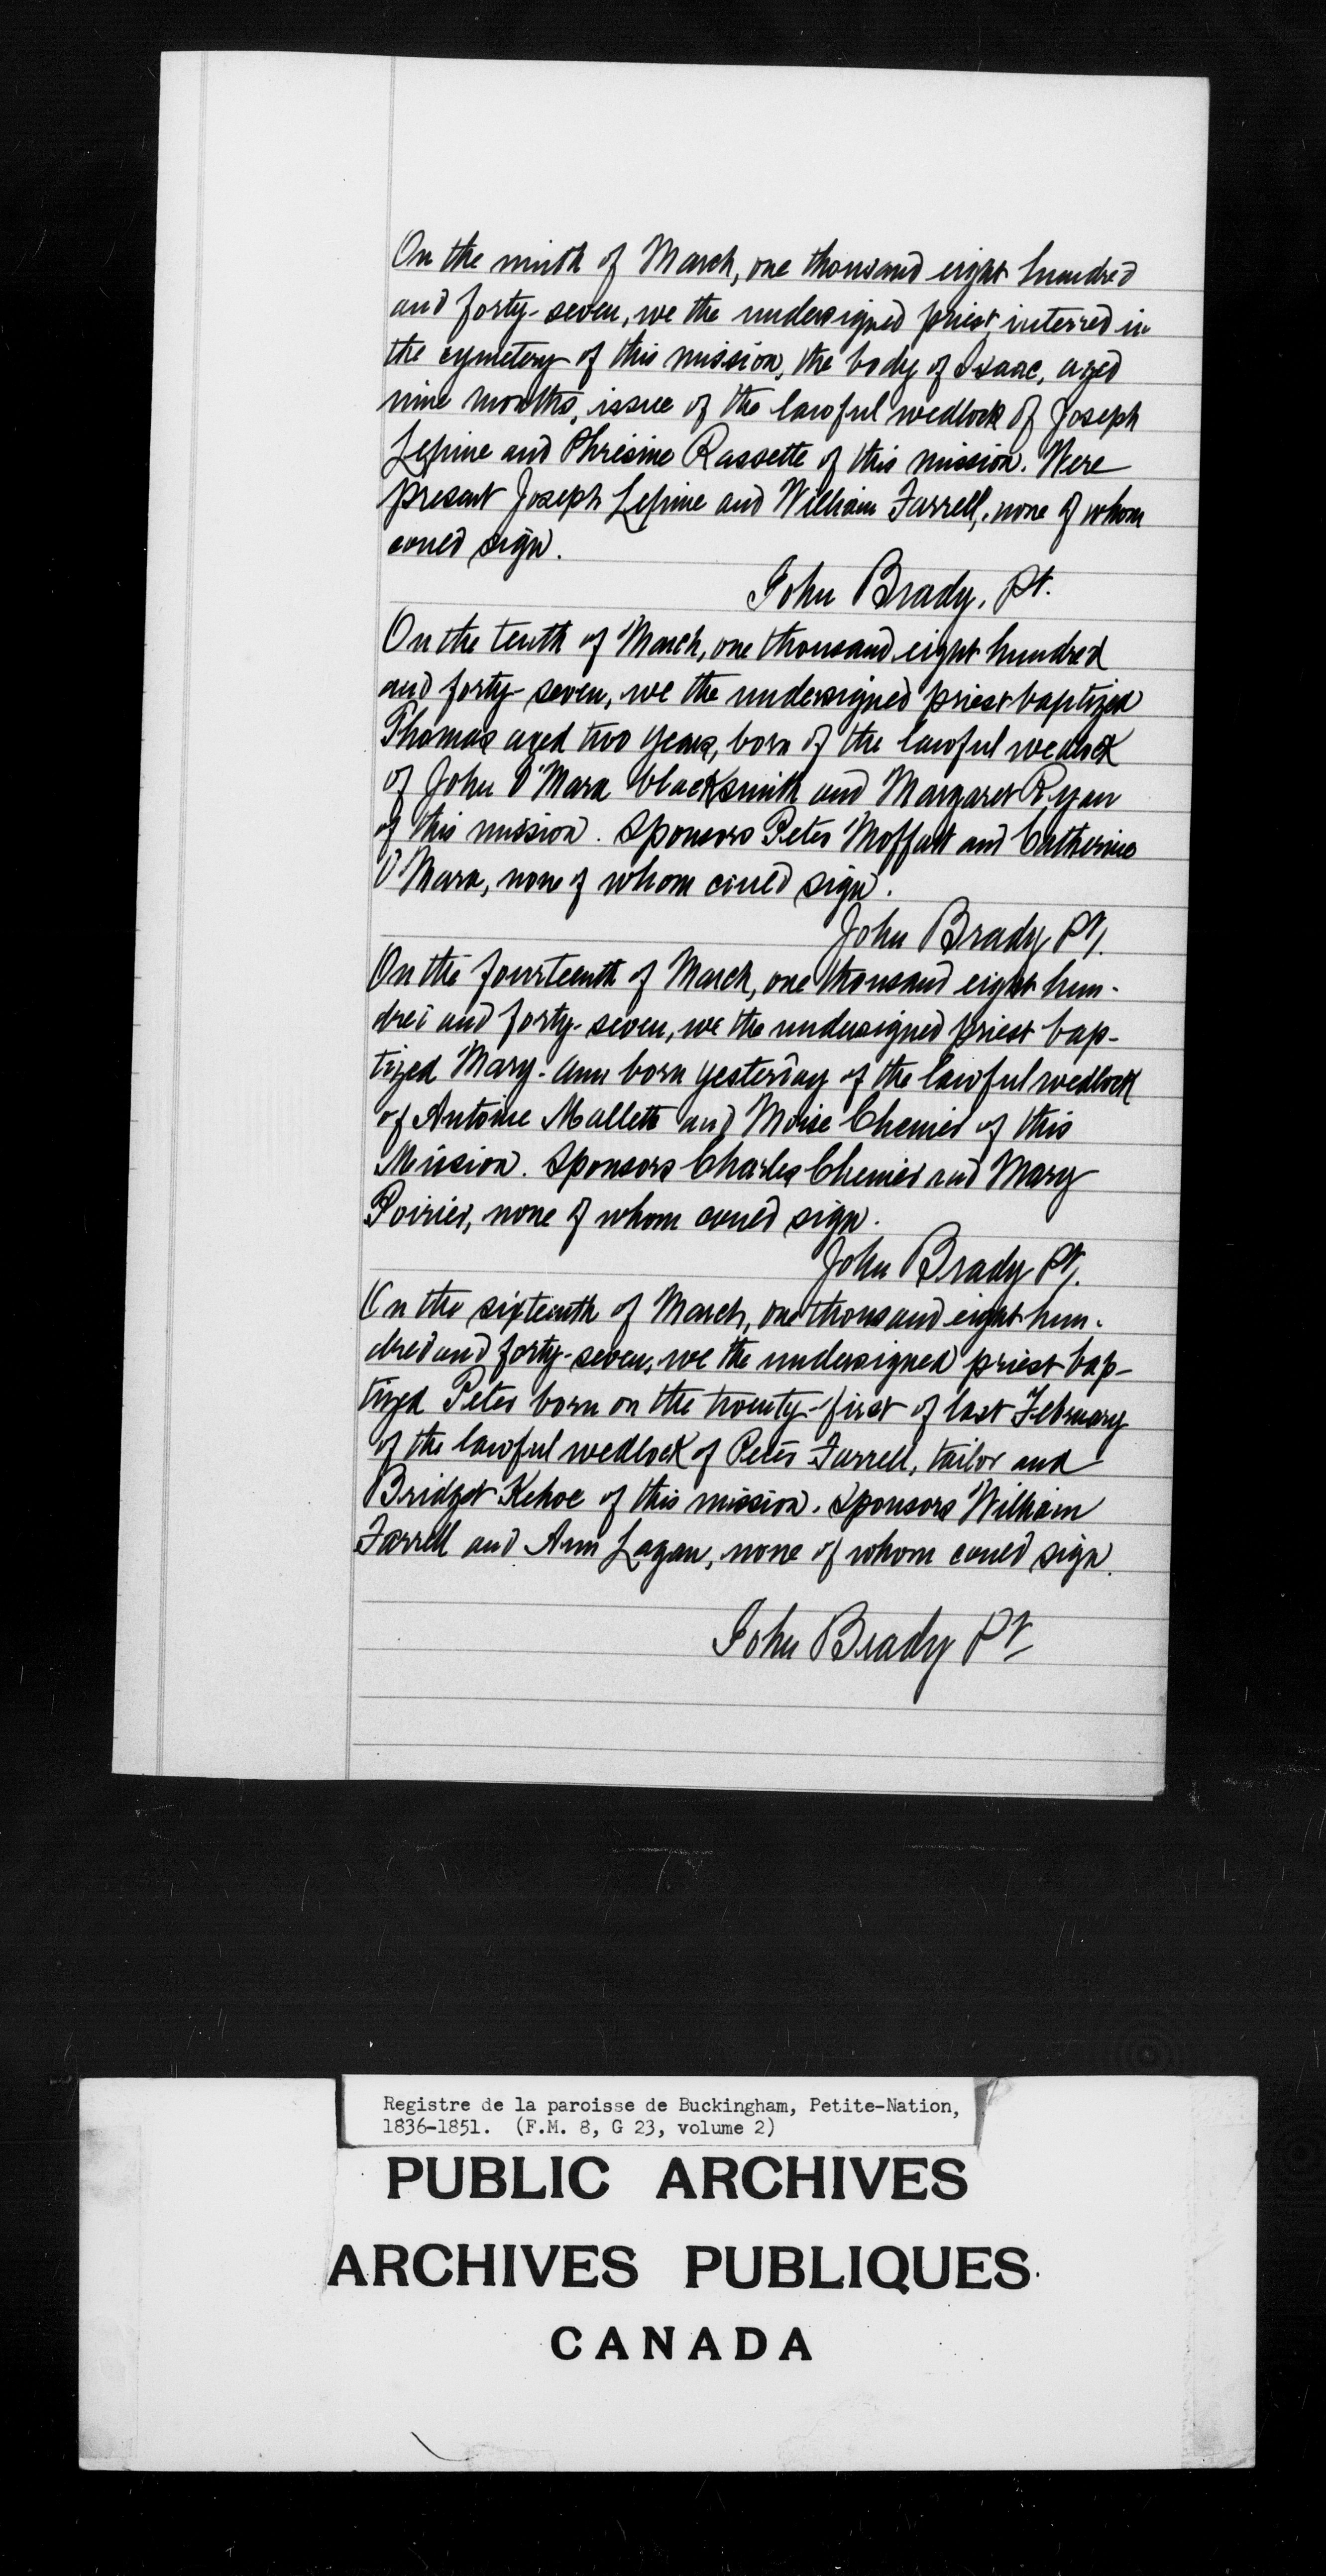 On the ninth of March, one thousand eight hundred
and forty-seven, we the undersigned priest, interred in
the cymetery of this mission, the body of Isaac, aged
nine months, issue of the lawful wedlock of Joseph
Lepine and Phrisine Rassette of this mission. Were
present Joseph Lepine and William Farrell, none of whom
could sign.
John Brady, Pt.
On the tenth of March, one thousand eight hundred
and forty-seven, we the undersigned priest baptized
Thomas aged two years, born of the lawful wedlock
of John O'Mara blacksmith and Margaret Ryan
of this mission. Sponsors Peter Moffatt and Catherine
O'Mara, none of whom could sign.
John Brady Pt.
On the fourteenth of March, one thousand eight hun-
dred and forty-seven, we the undersigned priest bap-
tized Mary-Ann born yesterday of the lawful wedlock
of Antoine Mallette and Moise Chenier of this
Mission. Sponsors Charles Chenier and Mary
Poirier, none of whom could sign.
John Brady Pt.
On the sixteenth of March, one thousand eight hun-
dred and forty-seven, we the undersigned priest bap-
tized Peter born on the twenty-first of last February
of the lawful wedlock of Peter Farrell, tailor and
Bridget Kehoe of this mission. Sponsors William
Farrell and Ann Lagan, none of whom could sign.
John Brady Pt
Registre de la paroisse de Buckingham, Petite-Nation,
1836-1851. (F.M. 8, G 23, volume 2)
PUBLIC ARCHIVES
ARCHIVES PUBLIQUES
CANADA